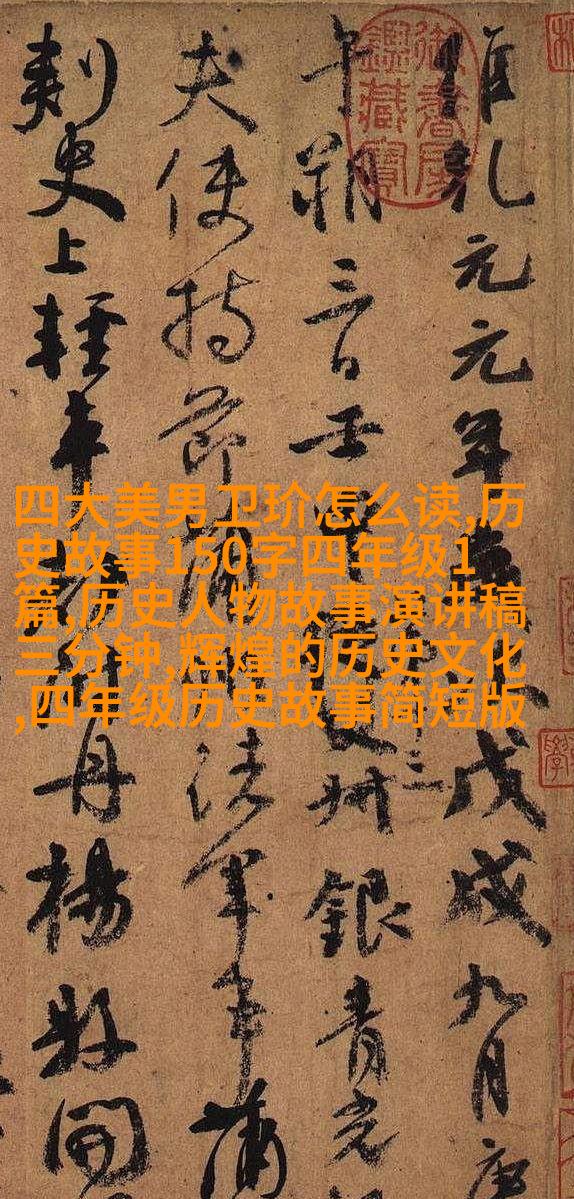 四大美男卫玠怎么读,历
史故事150字四年级1
篇,历史人物故事演讲稿
三分钟,辉煌的历史文化
,四年级历史故事简短版
維乾元元年戊戌九月庚
午朔三日壬州銀青光
夫使持節蒲州諸軍事蒲
刺史上輕車丹楊縣開
御書房鑒藏寶